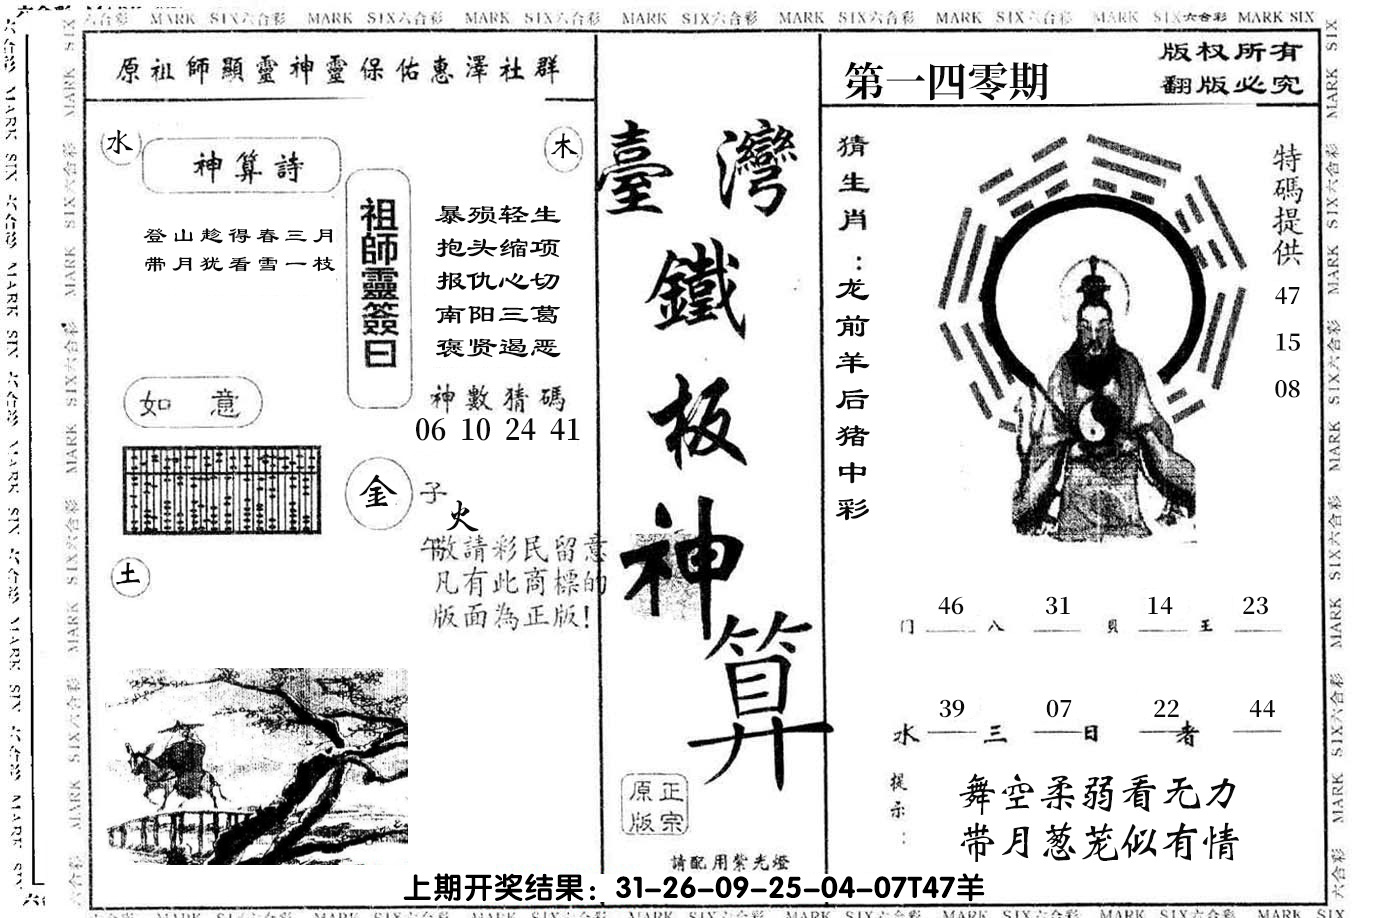 MARK SIX六合彩 MARK SIX六合彩 MARK SIX六合彩 MARK SIX六合彩 MARK SIX六合彩 MARK SIX六合彩 MARK SIX六合彩 MARK SIX
原祖師顯靈神靈保佑惠澤社群
水
神算詩
登山趁得春三月
带月犹看雪一枝
祖師靈簽曰
木
暴殒轻生
抱头缩项
报仇心切
南阳三葛
褒贤遏恶
神數猜碼
06 10 24 41
如意
金
子
火
午
敬請彩民留意
凡有此商標的
版面為正版!
土
臺灣
鐵
板
神
算
正宗
原版
請配用紫光燈
第一四零期
版权所有
翻版必究
猜生肖:龙前羊后猪中彩
特碼提供
47
15
08
46 31 14 23
门 八 貝 王
39 07 22 44
水 三 日 者
提示:
舞空柔弱看无力
带月葱茏似有情
上期开奖结果：31-26-09-25-04-07T47羊